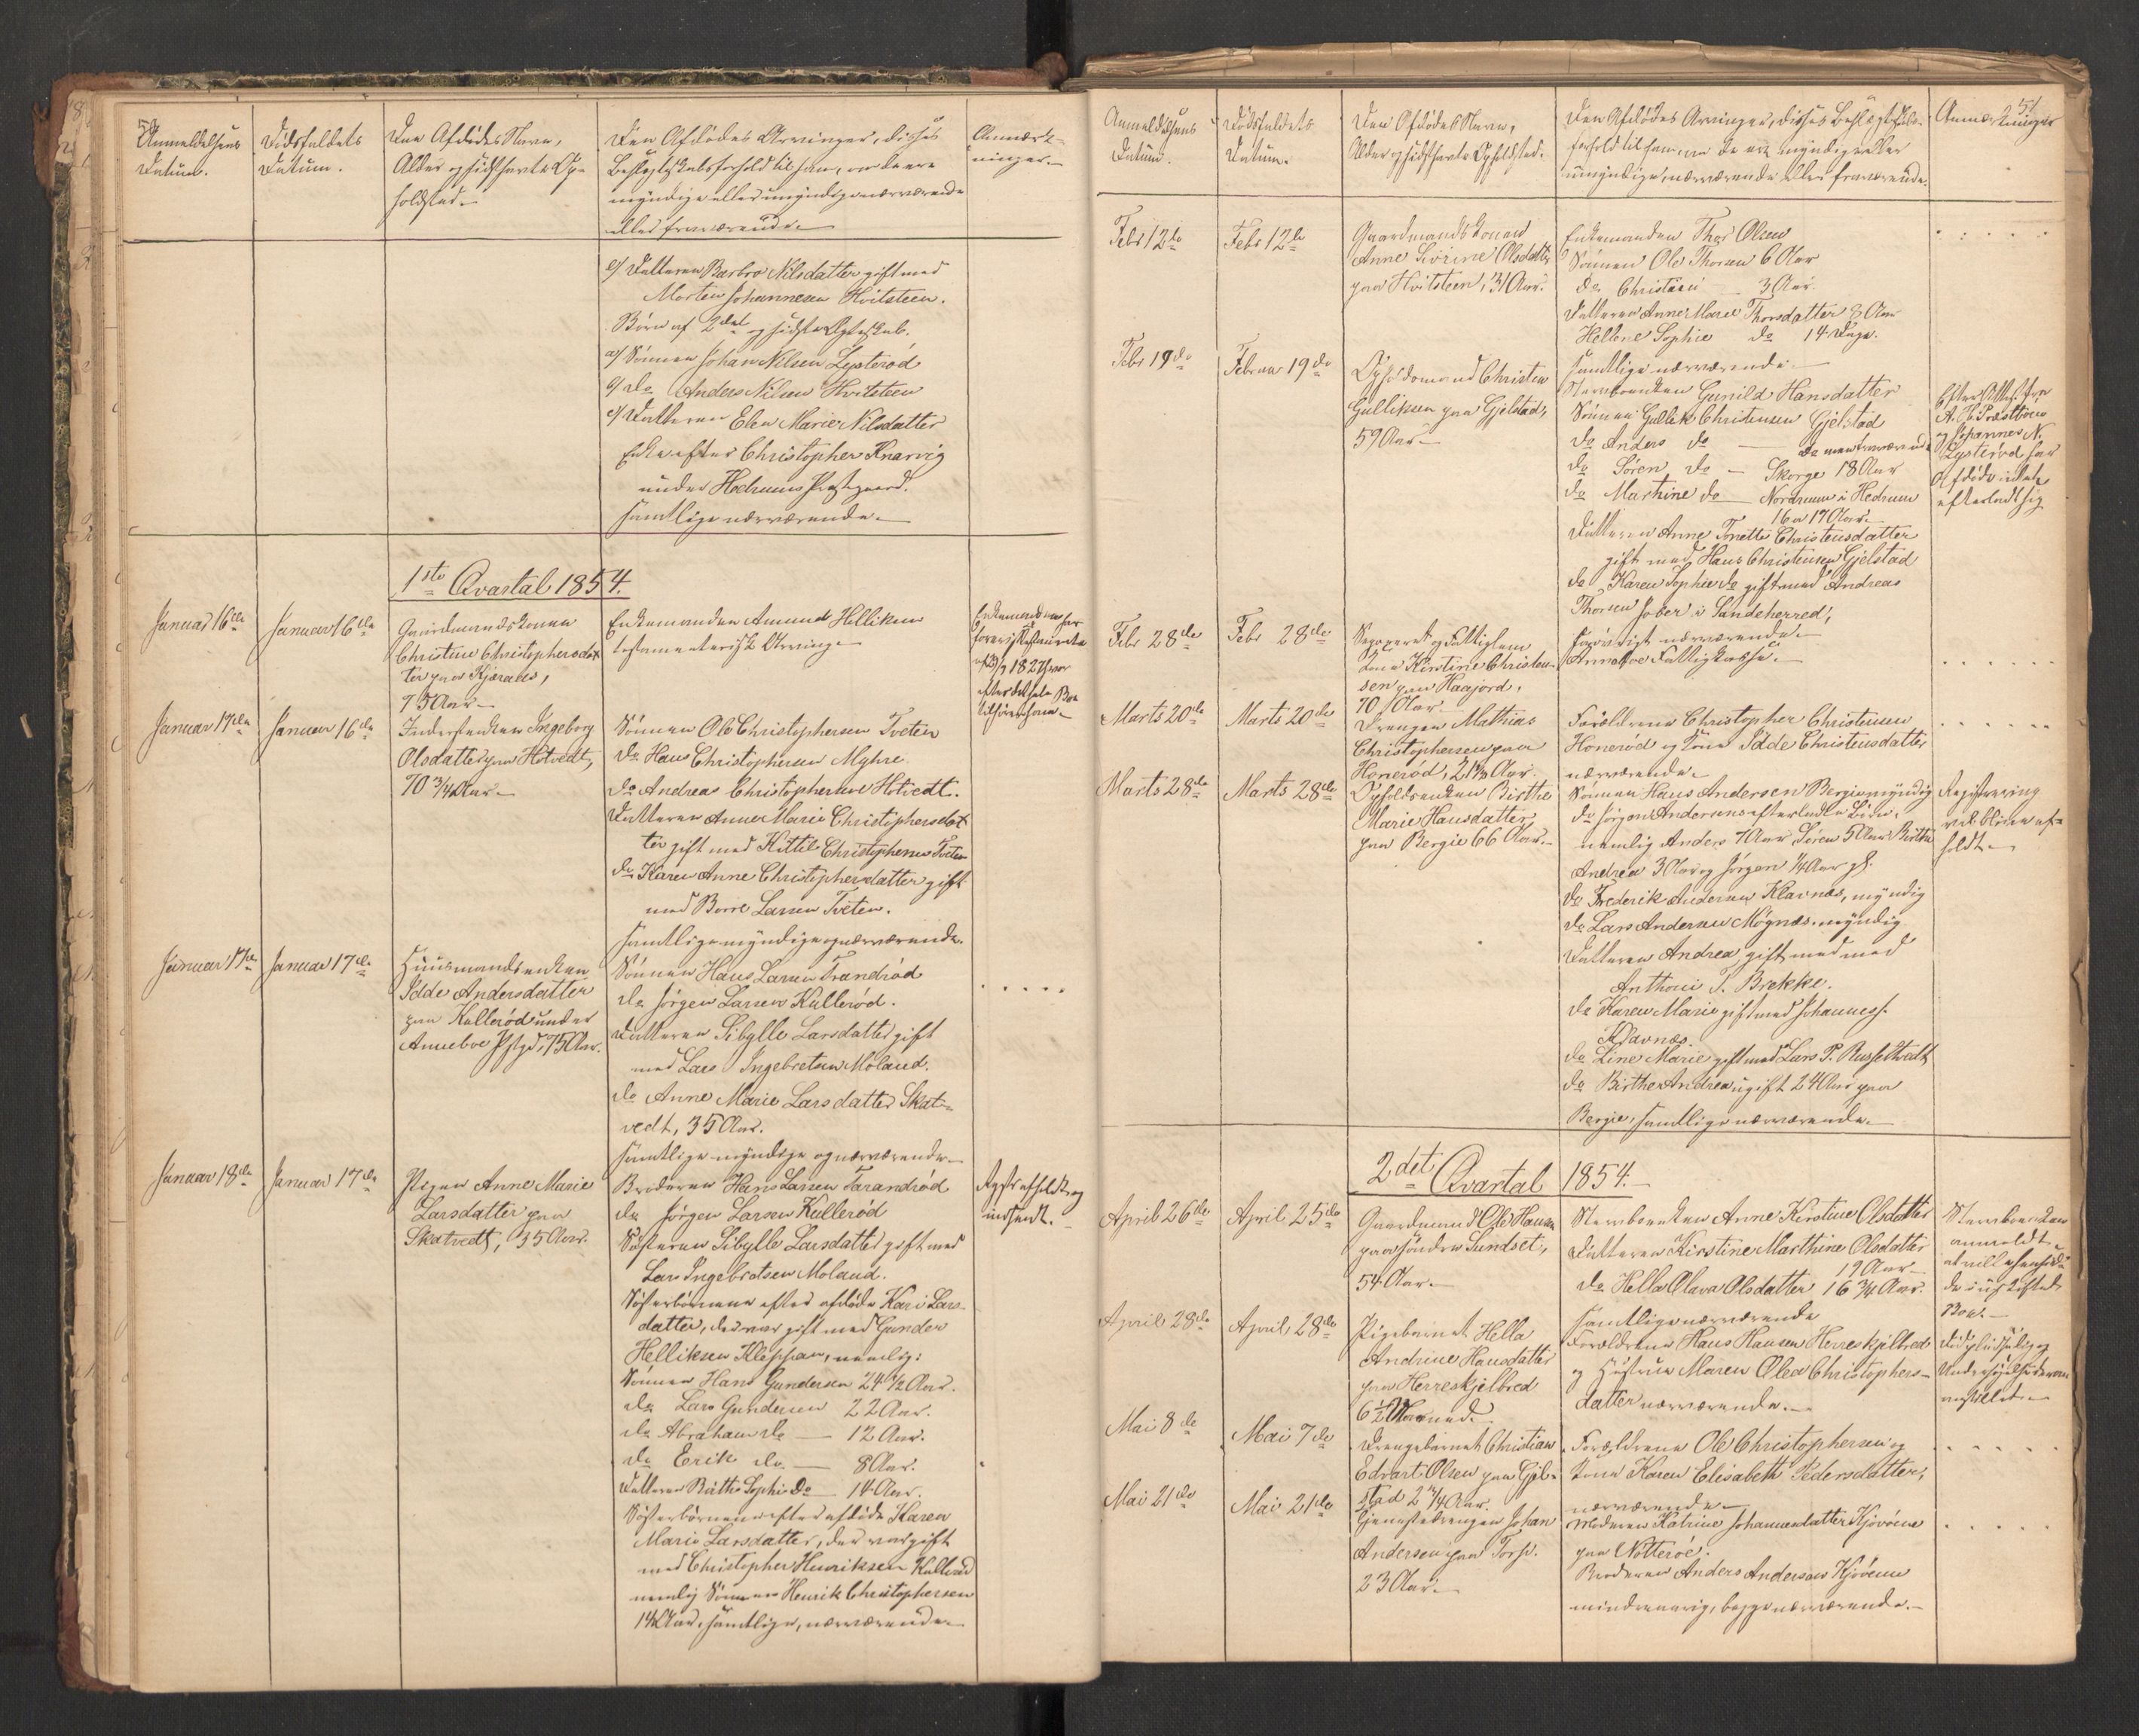 Anmeldelsens
Datum.
Dödsfaldets
Datum.
Den Afdödes Navn,
Alder og sidsthavte Op-
holdsted.
Den Afdödes Arvinger, disses
Beslægtskabsforhold til ham, om de ere
myndige eller umyndige nærværende
eller fraværende.
Anmærk-
ninger.
Datteren Barbro Nilsdatter gift med
Morten Johannesen Hvitsteen.
Börn af 2det og sidste Ægteskab.
a) Sönnen Johan Nilsen Lysteröd
do Anders Nilsen Hvitsteen
c) Datteren Elen Marie Nilsdatter
Enke efter Christopher Knarvig
under Hedrums Prestegaard.
samtlige nærværende.
1ste Qvartal 1854.
Januar 16de
Januar 16de
Gaardmandskonen
Christine Christophersdat
ter paa Kjæraas,
75 Aar
Enkemanden Amund Helliksen
testamentarisk Arving
Januar 17de
Januar 16de
Inderstenken Ingeborg
Olsdatter paa Hotvedt,
70 3/4 Aar
Sönnen Ole Christophersen Tveten
do Hans Christophersen Myhre.
do Andreas Christophersen Hotvedt.
Datteren Anne Marie Christophersdat
ter gift med Kittil Christophersen Tveten
do Karen Anne Christophersdatter gift
med Borre Larsen Tveten.
samtlige myndige og nærværende.
Januar 17de
Januar 17de
Huusmandsenken
Idde Andersdatter
paa Kulleröd under
Anneboe Pstgd, 75 Aar.
Sönnen Hans Larsen Trandröd
do Jörgen Larsen Kulleröd.
Datteren Sibylle Larsdatter gift
med Lars Ingebretsen Moland.
do Anne Marie Larsdatter Skat-
vedt, 35 Aar.
samtlige myndige og nærværende
Januar 18de
Januar 17de
Pigen Anne Marie
Larsdatter paa
Skatvedt, 35 Aar.
Broderen Hans Larsen Tarandröd
do Jörgen Larsen Kulleröd
Sösteren Sibylle Larsdatter gift med
Lars Ingebretsen Moland.
Sösterbörnene efter afdöde Kari Lars-
datter, der var gift med Gunder
Helliksen Kleppan, nemlig:
Sönnen Hans Gundersen 24 1/2 Aar.
do Lars Gundersen 22 Aar.
do Abraham do — 12 Aar.
do Erik do — 8 Aar.
Datteren Birthe Sophie do 14 Aar.
Sösterbörnene efter afdöde Karen
Marie Larsdatter, der var gift
med Christopher Henriksen Kulleröd
nemlig Sönnen Henrik Christophersen
samtlige, nærværende
51
Anmeldelsens
Datum.
Dödsfaldets
Datum.
Den Afdödes Navn,
Alder og sidsthavte Opholdsted.
Den Afdödes Arvinger, disses Beslægtskabs-
forhold til ham, om de ere myndige eller
umyndige, nærværende eller fraværende.
Anmærkninger
Febr 12te
Febr 12te
Gaardmandskonen
Anne Sivrine Olsdatter
paa Hvitsteen, 31 Aar.
Enkemanden Thor Olsen
Sönnen Ole Thorsen 6 Aar
do Christian 3 Aar.
Datteren Anne Marie Thorsdatter 8 Aar
Hellene Sophie do 14 Dage.
samtlige nærværende.
Febr 19de
Februar 19de
Opholdsmand Christen
Gulliksen paa Gjelstad,
59 Aar
Sterboenken Gunild Hansdatter
Sönnen Gullik Christensen Gjelstad
do Anders do — do men fraværende
do Sören do — Skorge 18 Aar
do Martine do Nordrum i Hedrum
16 a 17 Aar.
Datteren Anne Tonette Christensdatter
gift med Hans Christensen Gjelstad
do Karen Sophie do gift med Andreas
Thorsen Jober i Sandeherred,
forövrigt nærværende.
Efter Attest fra
A. H. Præsttun
og Johannes N.
Lysteröd har
Afdöde intet
efterladt sig
Febr 28de
Febr 28de
Kone Kirstine Christen-
sen paa Haajord,
70 Aar
Anneboe Fattigkasse.
Marts 20de
Marts 20de
Drengen Mathias
Christophersen paa
Honeröd, Aar.
Forældrene Christopher Christensen
Honeröd og Kone Idde Christensdatter
nærværende
Marts 28de
Marts 28de
Opholdsenken Birthe
Marie Hansdatter
paa Bergie 66 Aar.
Sönnen Hans Andersen Bergie myndig
do Jörgen Andersens efterladte Börn,
nemlig Anders 7 Aar Sören 5 Aar Birthe
Andrea 3 Aar og Jörgen 1/4 Aar gl.
do Frederik Andersen Klavnæs, myndig
do Lars Andersen Mögnæs. myndig
Datteren Andrea gift med
Anthoni T. Brekke.
do Karen Marie gift med Johannes
Klavnæs.
do Line Marie gift med Lars P. Rusfeltvedt
do Birthe Andrea ugift 24 Aar paa
Bergie, samtlige nærværende.
Registrering
vil blive af-
holdt.
2det Qvartal 1854.
April 26de
April 25de
Gaardmand Ole Hansen
paa söndre Sundset,
54 Aar.
Sterboenken Anne Kirstine Olsdatter
Datteren Kirstine Marthine Olsdatter
19 Aar
do Hella Olava Olsdatter 16 3/4 Aar.
samtlige nærværende
April 28de
April 28de
Pigebarnet Hella
Andrine Hansdatter
paa Herreskjelbred
6 1/2 Maaned.
Forældrene Hans Hansen Herreskjelbred
og Hustrue Maren Olea Christophers-
datter nærværende.
Mai 8de
Mai 7de
Drengebarnet Christian
Edvart Olsen paa Gjel-
stad 2 1/4 Aar.
Forældrene Ole Christophersen og
Kone Karen Elisabeth Pedersdatter,
nærværende
Mai 21de
Mai 21de
Tjenestedrengen Johan
Andersen paa Torp.
23 Aar.
Moderen Katrine Johannesdatter Kjöröen
paa Nötteröe.
Broderen Anders Andersen Kjöröen
mindreaarig, begge nærværende.